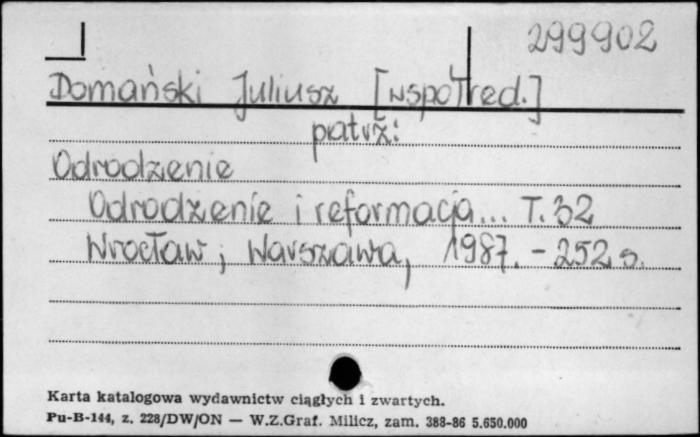 299902
Domański Juliusz [współred.]
patrz:
Odrodzenie
Odrodzenie i reformacja... T. 32
Wrocław; Warszawa, 1987. - 252 s.
Karta katalogowa wydawnictw ciągłych i zwartych.
Pu-B-144, z. 228/DW/ON — W.Z.Graf. Milicz, zam. 388-86 5.650.000